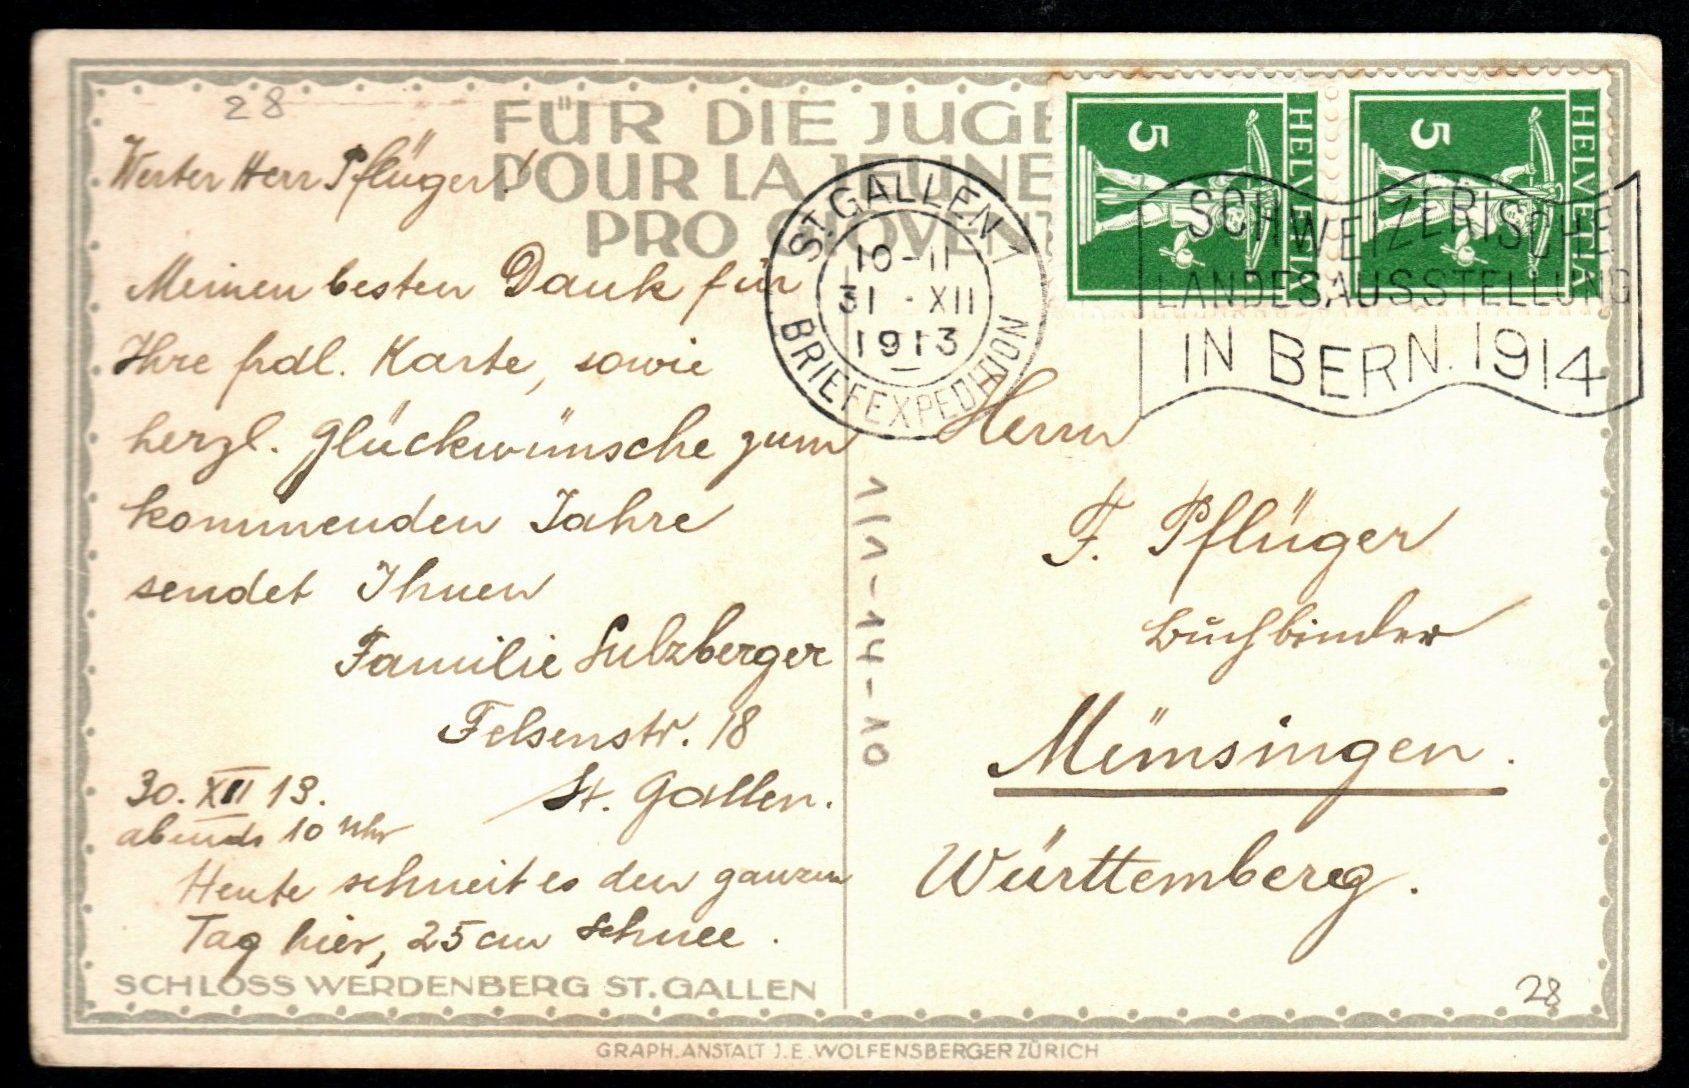 28
FÜR DIE JUGE
POUR LA JEUNE
PRO GIOVENT
Werter Herr Pflüger!
Meinen besten Dank für
Ihre frdl. Karte, sowie
herzl. Glückwünsche zum
kommenden Jahre
sendet Ihnen
Familie Sulzberger
Felsenstr. 18
St. Gallen.
30. XII 13.
abends 10 Uhr
Heute schneit es den ganzen
Tag hier, 25 cm Schnee.
SCHLOSS WERDENBERG ST. GALLEN
HELVETIA 5
HELVETIA 5
ST. GALLEN 1
10-11
31 . XII
1913
BRIEFEXPEDITION
SCHWEIZERISCHE
LANDESAUSSTELLUNG
IN BERN. 1914
Herrn
F. Pflüger
Buchbinder
Münsingen.
Württemberg.
28
GRAPH. ANSTALT J. E. WOLFENSBERGER ZÜRICH